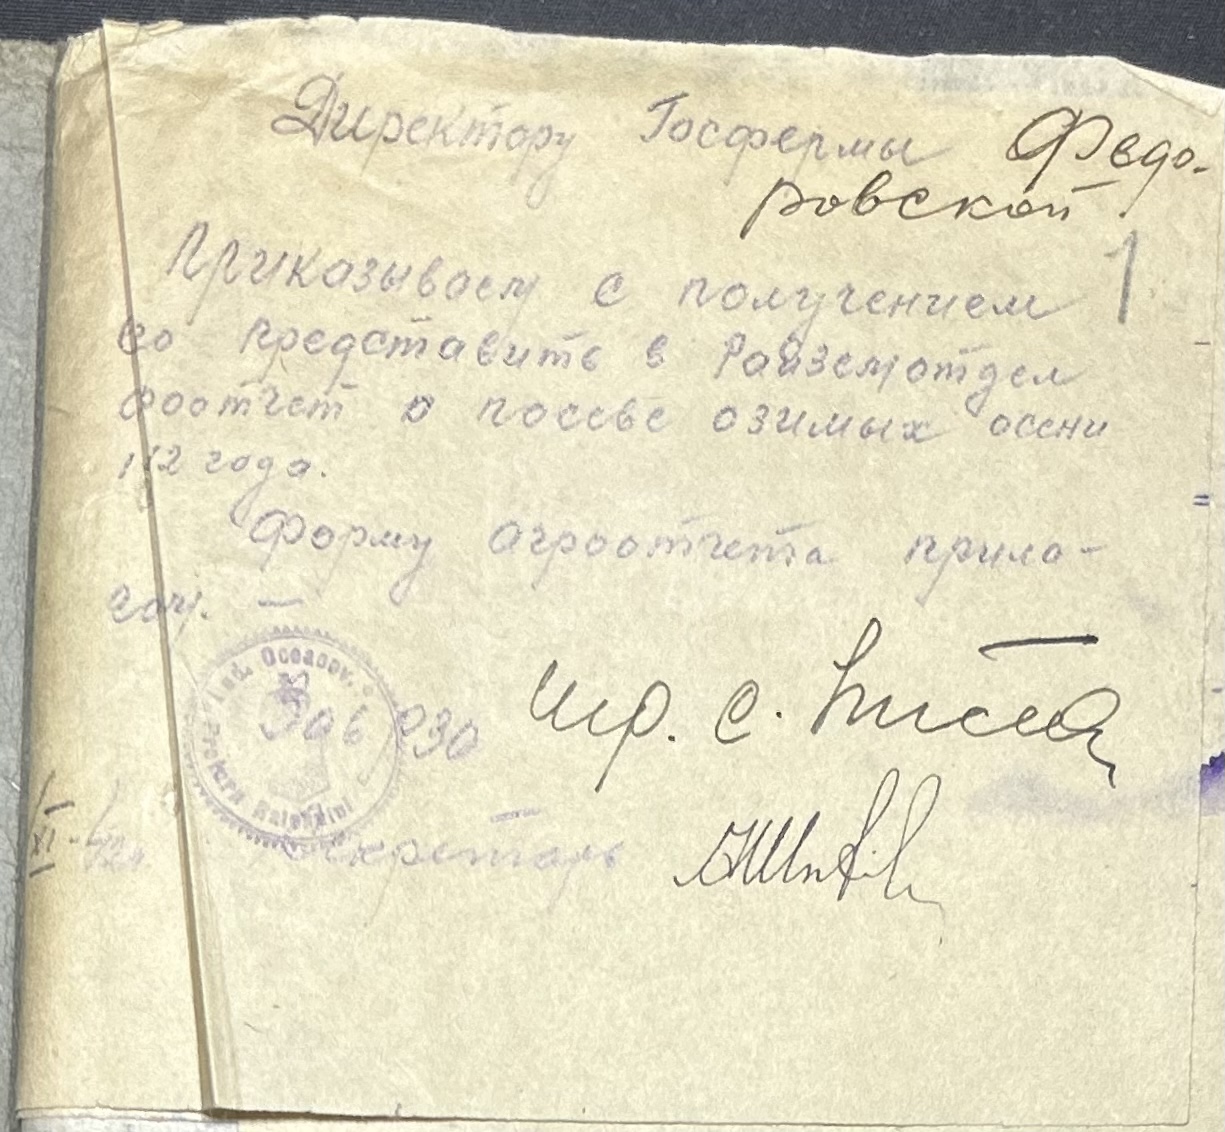 Директору Госфермы Федо-
ровской
1
Приказываем с получением
го представить в Райземотдел
роотчет о посеве озимых осени
2 года.
Форму агроотчета прила-
гаем. —
Jud. Oceacov.
Зав. РЗО
Pretura Raionului
XI
секретарь